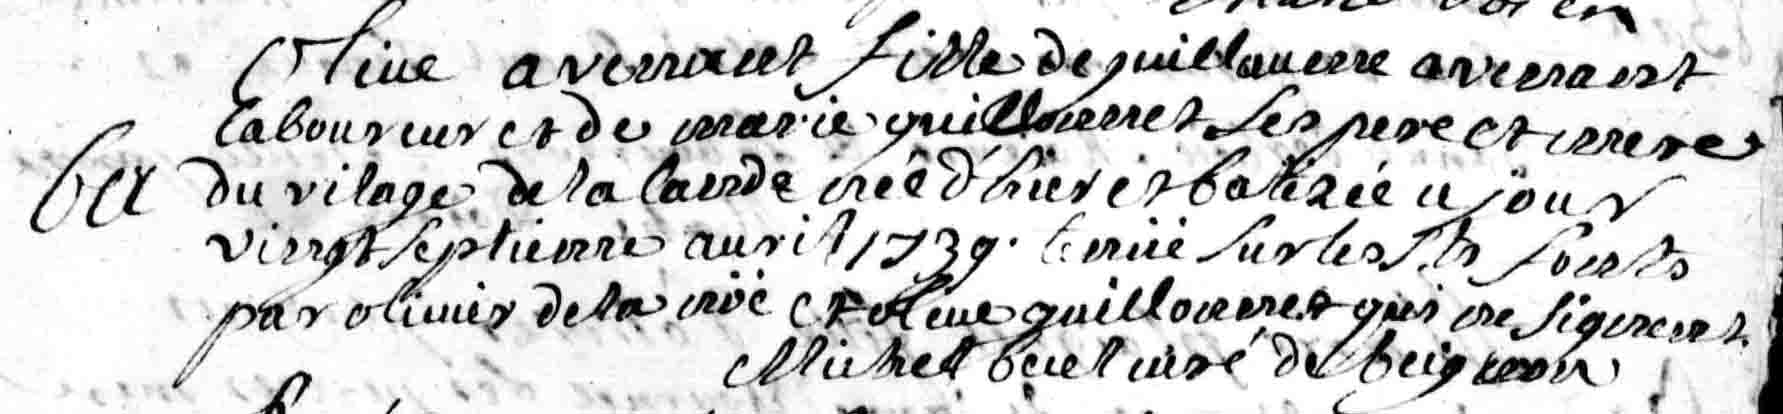 Olive avenant fille de guillaume avenant
laboureur et de marie guillemet ses pere et mere
du vilage de la lande née d'hier et batizée u jour
vingt septieme auril 1739. tenüe sur les sts fonts
par oliuier de la noë et oliue guillemet qui ne signent
Michel curé de beignon